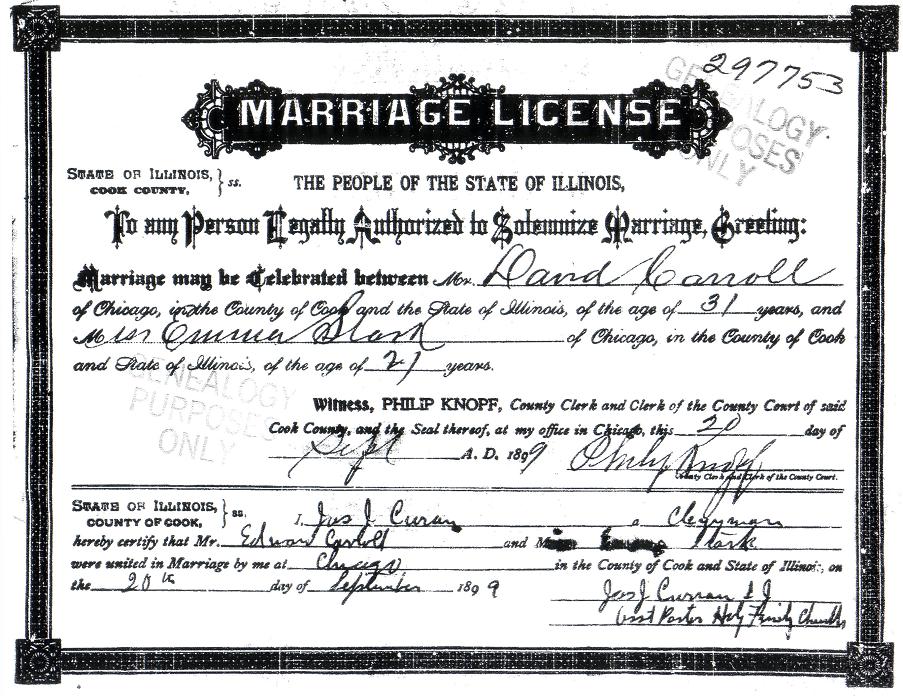 297753
GENEALOGY PURPOSES ONLY
MARRIAGE LICENSE
STATE OF ILLINOIS, COOK COUNTY, } ss.
THE PEOPLE OF THE STATE OF ILLINOIS,
To any Person Legally Authorized to Solemnize Marriage, Greeting:
Marriage may be Celebrated between Mr. David Carroll
of Chicago, in the County of Cook and the State of Illinois, of the age of 31 years, and
Miss Emma Stark of Chicago, in the County of Cook
and State of Illinois, of the age of 21 years.
GENEALOGY PURPOSES ONLY
Witness, PHILIP KNOPF, County Clerk and Clerk of the County Court of said
Cook County, and the Seal thereof, at my office in Chicago, this 20 day of
Sept A. D. 1899 Philip Knopf
County Clerk and Clerk of the County Court.
STATE OF ILLINOIS, COUNTY OF COOK, } ss.
I, Jas J Curran a Clergyman
hereby certify that Mr. Edward Carroll and Miss Stark
were united in Marriage by me at Chicago in the County of Cook and State of Illinois, on
the 20th day of September 1899
Jas J Curran S J
Asst Pastor Holy Family Church